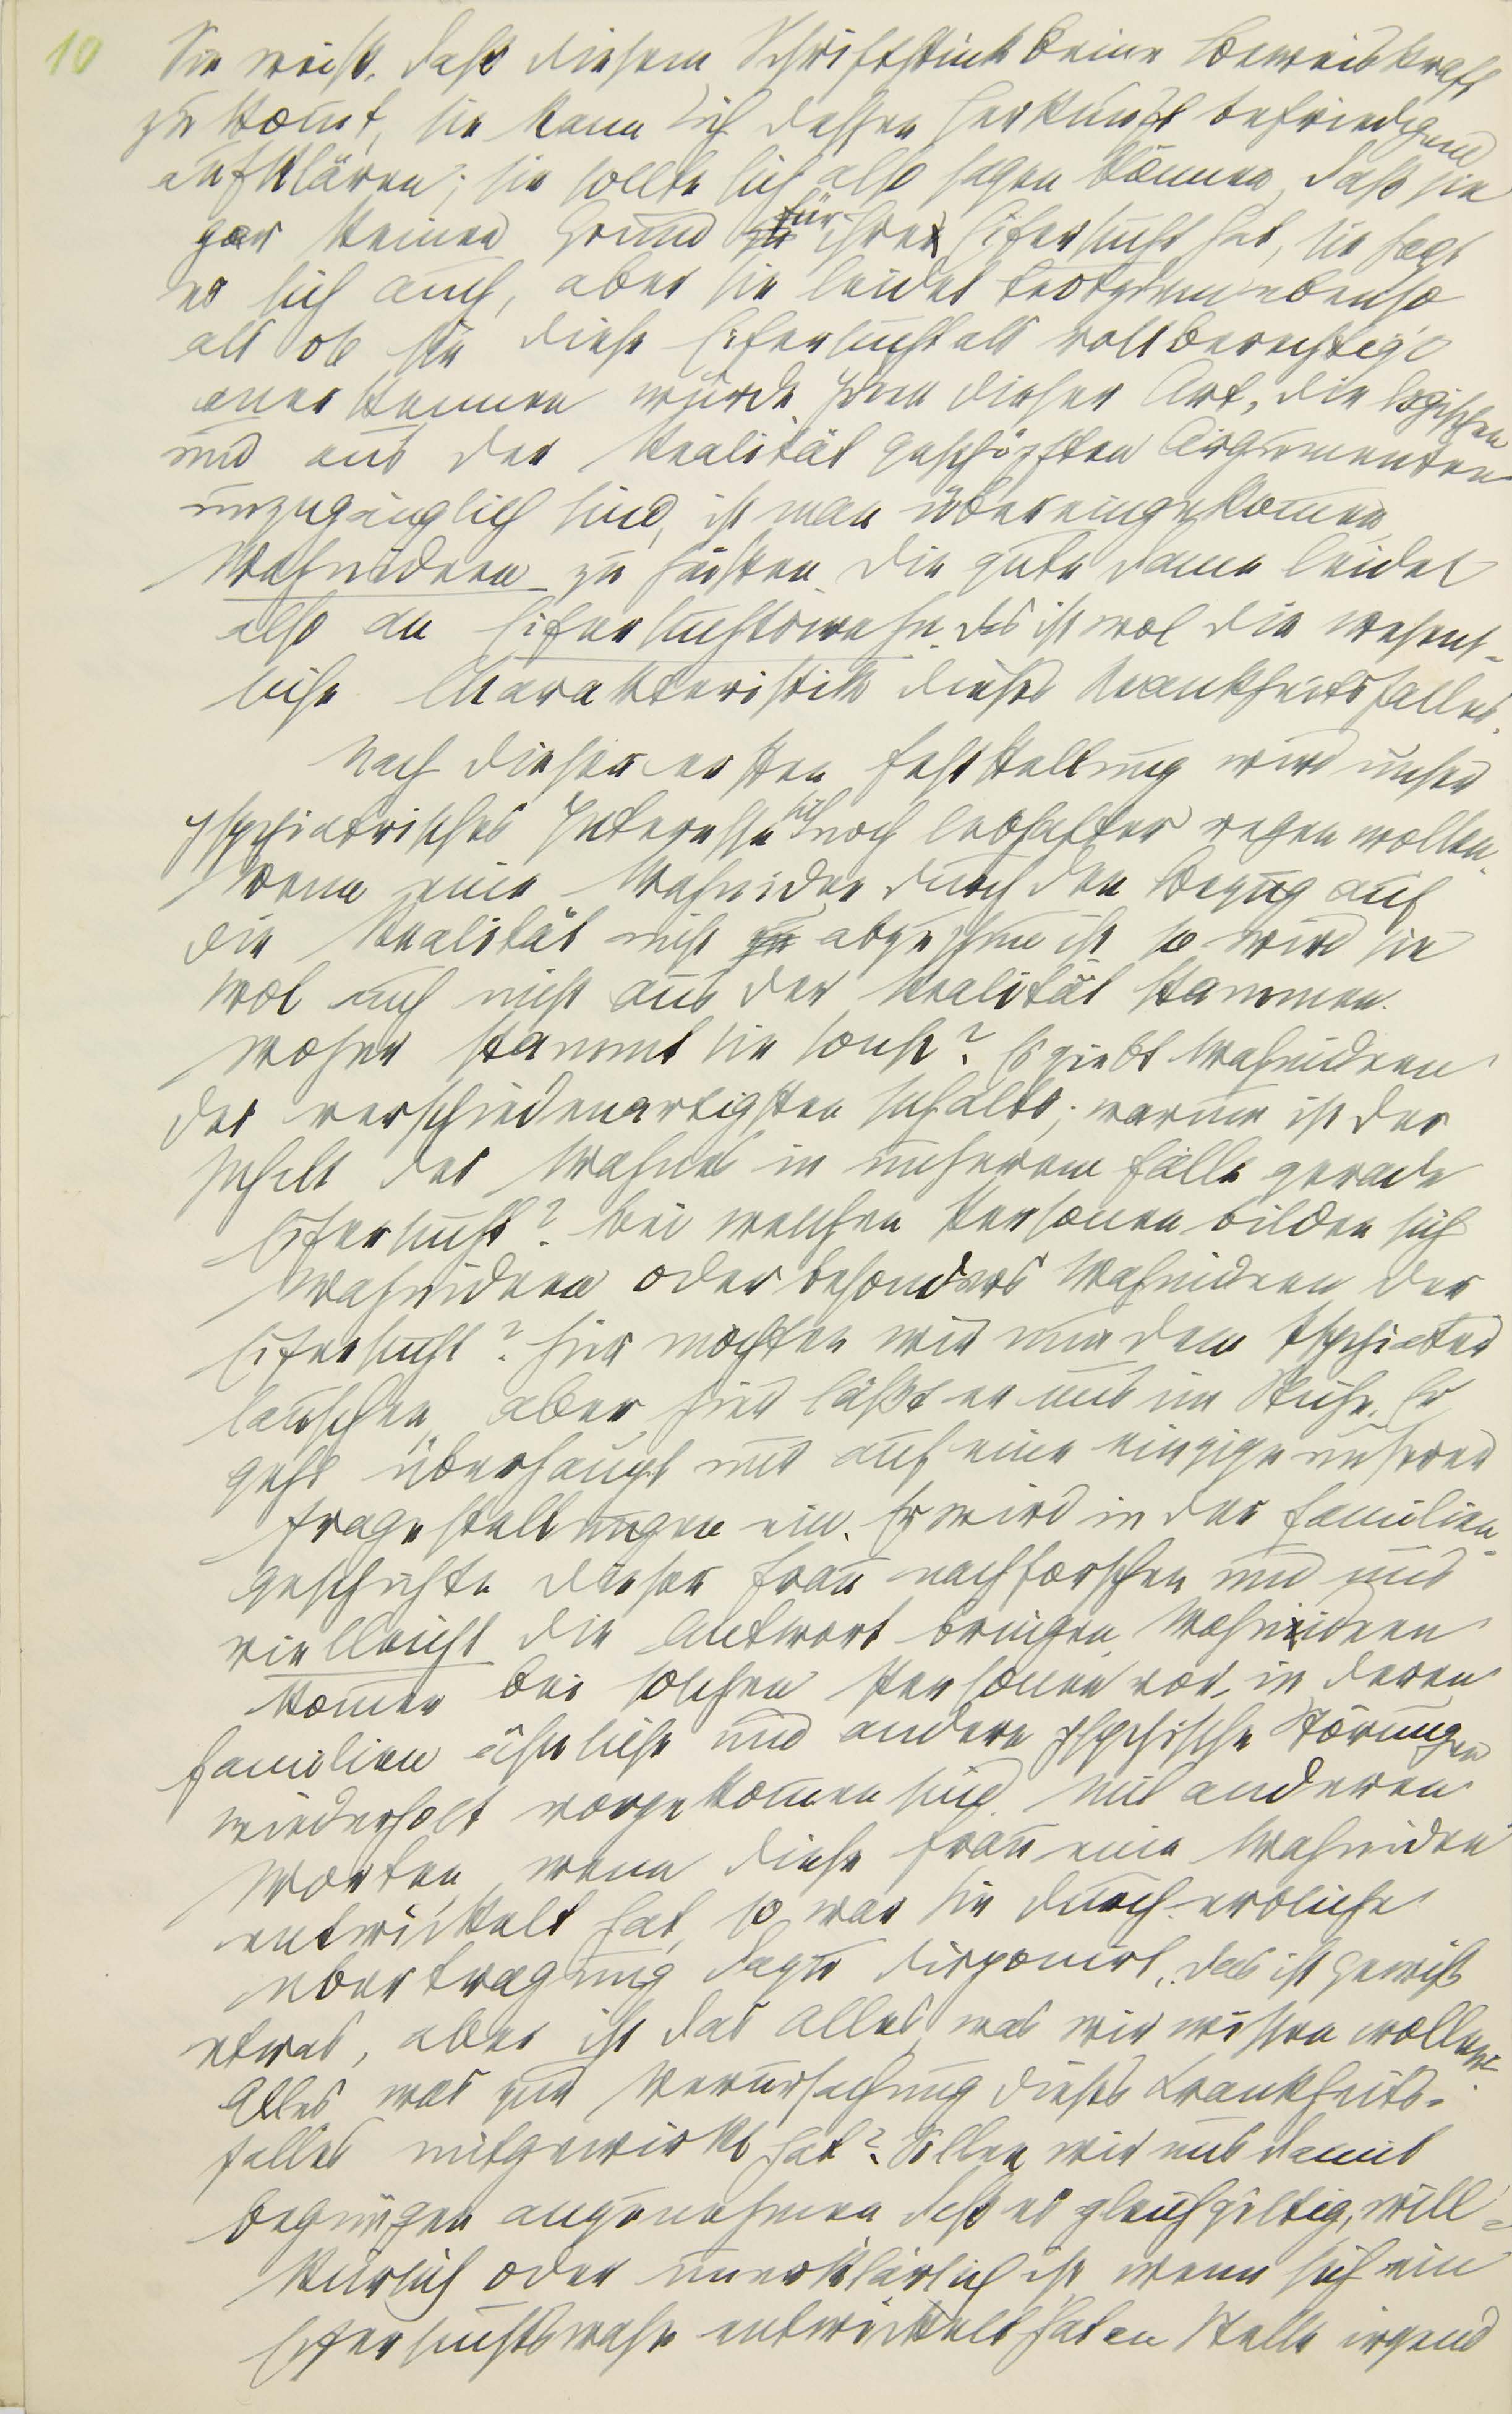 10
Sie weiß, daß diesem Schriftstück keine Beweiskraft
zukom̄t, sie kann sich dessen Herkunft befriedigend
aufklären; sie sollte sich also sagen können, daß sie
gar keinen Grund für ihre Eifersucht hat, sie sagt
es sich auch, aber sie leidet trotzdem ebenso
als ob sie diese Eifersucht als vollberechtigt
anerkennen würde. Ideen dieser Art, die logischen
und aus der Realität geschöpften Argumenten
unzugänglich sind, ist man übereingekom̄en,
Wahnideen zu heißen. Die gute Dame leidet
also an Eifersuchtswahn. Das ist wol die wesent-
liche Charakteristik dieses Krankheitsfalles.
Nach dieser ersten Feststellung wird unser
psychiatrisches Interesse sich noch lebhafter regen wollen.
Wenn eine Wahnidee durch den Bezug auf
die Realität nicht abzuthun ist so wird sie
wol auch nicht aus der Realität stammen.
Woher stammt sie sonst? Es giebt Wahnideen
des verschiedenartigsten Inhalts; warum ist der
Inhalt des Wahnes in unserem Falle gerade
Eifersucht? Bei welchen Personen bilden sich
Wahnideen oder besonders Wahnideen der
Eifersucht? Hier möchten wir nun dem Psychiater
lauschen, aber hier läßt er uns im Stiche. Er
geht überhaupt nur auf eine einzige unserer
Fragestellungen ein. Er wird in der Familien-
geschichte dieser Frau nachforschen und uns
vielleicht die Antwort bringen, Wahnideen
kom̄en bei solchen Personen vor, in deren
Familien ähnliche und andere psychische Störungen
wiederholt vorgekom̄en sind. Mit anderen
Worten, wenn diese Frau eine Wahnidee
entwickelt hat, so war sie durch erbliche
Uebertragung dazu disponirt. Das ist gewiß
etwas, aber ist das alles was wir wissen wollen?
Alles was zur Verursachung dieses Krankheits-
falles mitgewirkt hat? Sollen wir uns damit
begnügen anzunehmen daß es gleichgiltig, will-
kürlich oder unerklärlich ist wenn sich ein
Eifersuchtswahn entwickelt hat an Stelle irgend